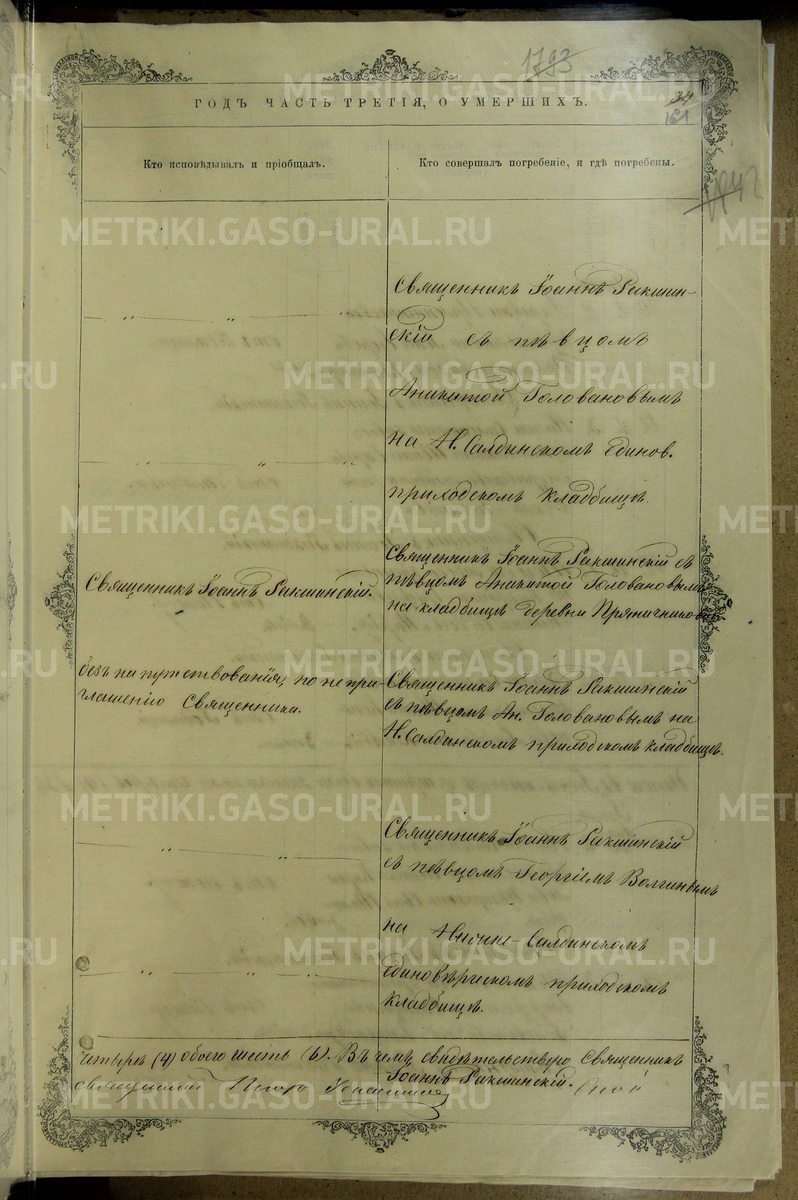 1793
ГОДЪ ЧАСТЬ ТРЕТІЯ, О УМЕРШИХЪ.
34
161
Кто исповѣдывалъ и пріобщалъ.
Кто совершалъ погребеніе, и гдѣ погребены.
Священникъ Іоаннъ Ракшин-
скій съ пѣвцомъ
Аникитой Головановымъ
на Н. Салдинскомъ единов.
приходскомъ кладбищѣ
Священникъ Іоаннъ Ракшинскій.
Священникъ Іоаннъ Ракшинскій съ
пѣвцомъ Аникитой Головановымъ
на кладбищѣ деревни Пряничниковой
безъ напутствованія, по непри-
глашенію Священника.
Священникъ Іоаннъ Ракшинскій
съ пѣвцомъ Ан. Головановымъ на
Н. Салдинскомъ приходскомъ кладбищѣ.
Священникъ Іоаннъ Ракшинскій
съ пѣвцомъ Георгіемъ Волгинымъ
на Нижне-Салдинскомъ
единовѣрческомъ приходскомъ
кладбищѣ.
четыре (4) обоего шесть (6). Въ чемъ свидѣтельствую Священникъ
Іоаннъ Ракшинскій.
METRIKI.GASO-URAL.RU